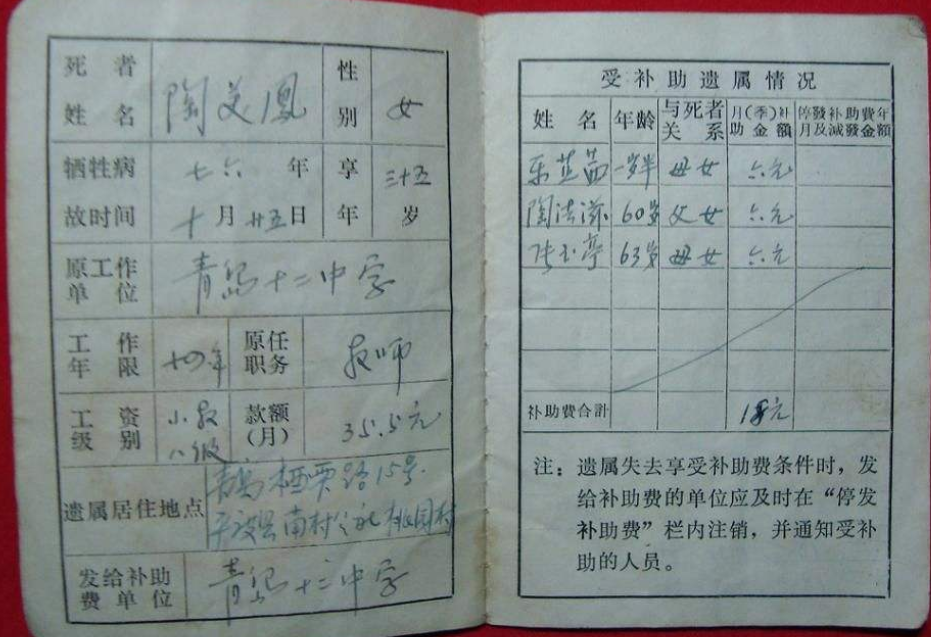 死者 陶美凤 性 女
姓名 别
牺牲病 七六 年 享 三十五
故时间 十 月 廿五 日 年 岁
原工作 青岛十二中学
单位
工作 十四年 原任 教师
年限 职务
工资 小教 款额 35.5元
级别 八级 (月)
青岛 路15号
遗属居住地点
平度县南村公社桃园村
发给补助 青岛十二中学
费单位
受补助遗属情况
姓名 年龄 与死者 月(季)补 停發补助費年
关系 助金額 月及減發金額
一岁半 母女 六元
陶 60岁 父女 六元
张玉亭 63岁 母女 六元
补助費合計 18元
注：遗属失去享受补助费条件时，发
给补助费的单位应及时在“停发
补助费”栏内注销，并通知受补
助的人员。